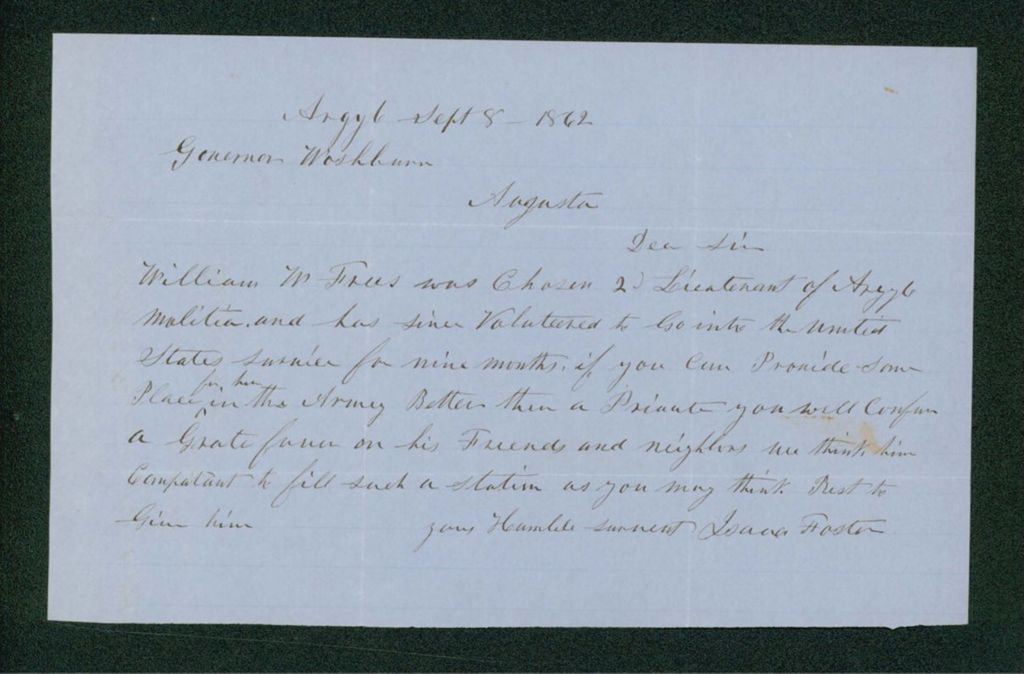 Argyle Sept 8 - 1862
Governor Washburn
Augusta
Dea Sir
William W Frees was Chosen 2d Lieutenant of Argyle
Malitia. and has since Voluteered to Go into the United
States survice for nine months. if you Can Provide Some
Place for him in the Armey Better then a Private you will Confur
a Grate favur on his Friends and neighbors we think him
Compatant to fill such a station as you may think Best to
Give him your Humble survent Isaac Foster